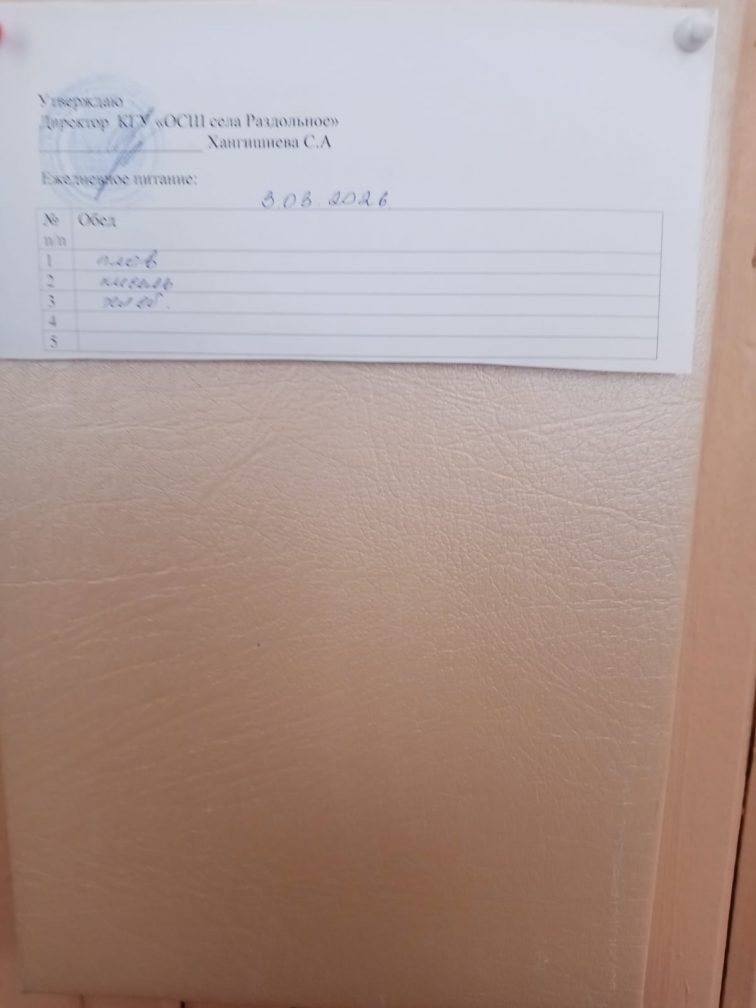 Утверждаю
Директор КГУ «ОСШ села Раздольное»
Хангишиева С.А
Ежедневное питание:
3.03.2026
№ п/п Обед
1 плов
2 кисель
3 хлеб.
4
5